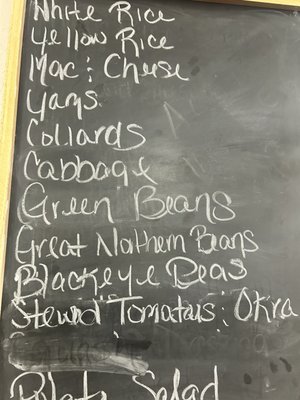 White Rice
Yellow Rice
Mac & Cheese
Yams
Collards
Cabbage
Green Beans
Great Nothern Beans
Blackeye Peas
Stewd Tomatoes & Okra
Potato Salad